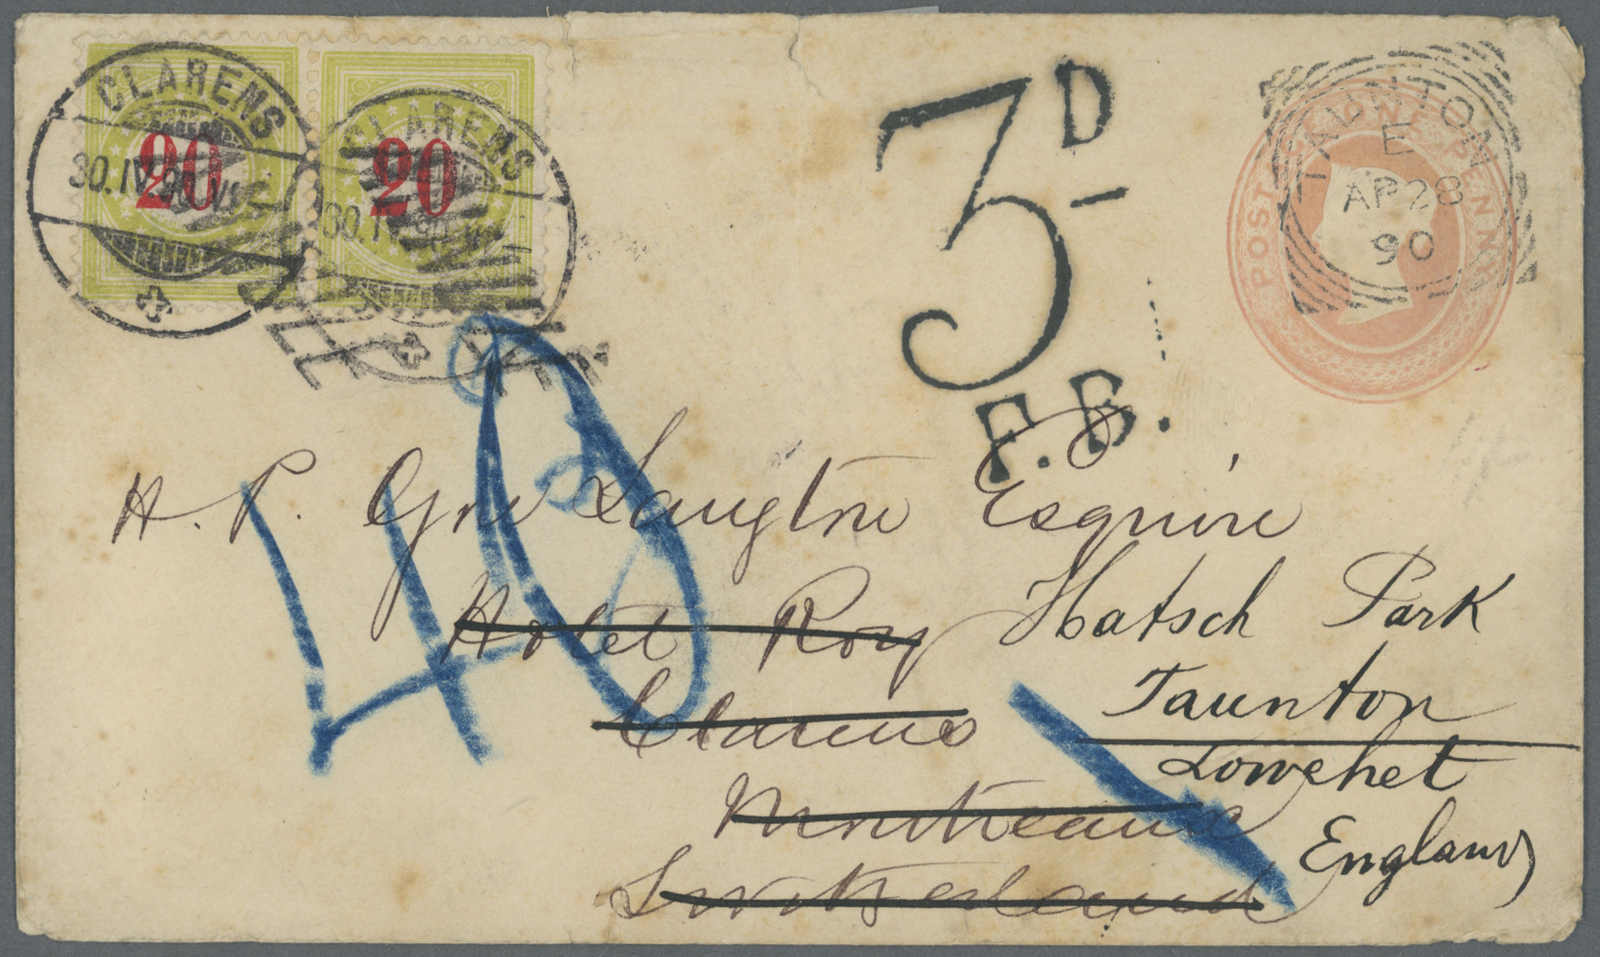 CLARENS
30.IV.90.VI
20
CLARENS
30.IV.90.VI
20
3D
F.B.
POSTAGE ONE PENNY
TAUNTON
E
AP 28
90
40
H. P. Gore Langton Esquire
Hotel Roy
Clarens
Montreaux
Switzerland
Hatsch Park
Taunton
England